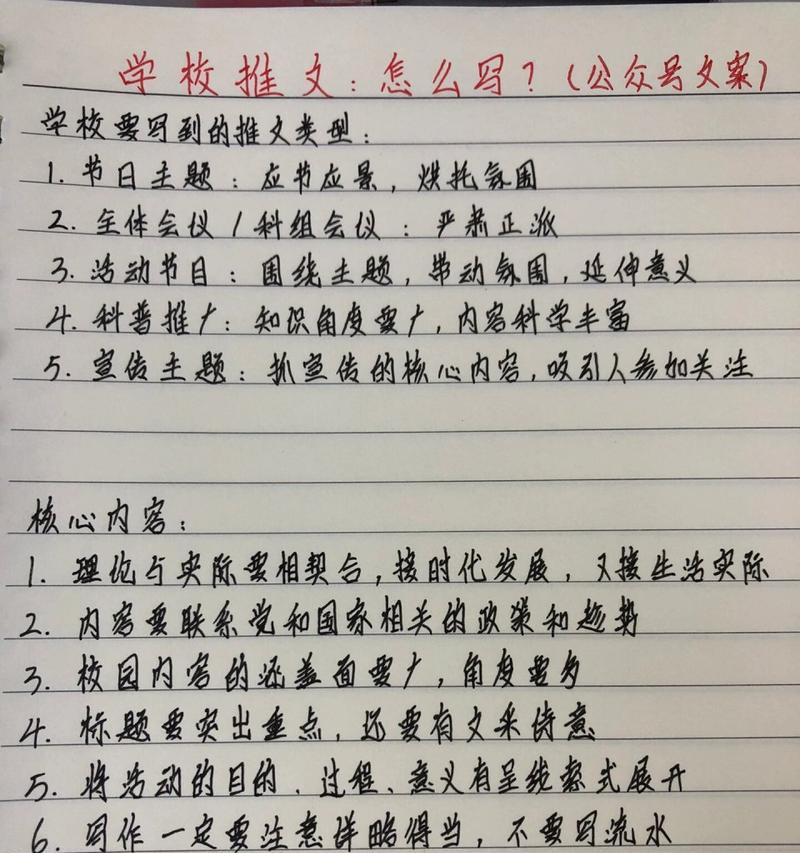 学校推文：怎么写？（公众号文案）
学校要写到的推文类型：
1. 节日主题：应节应景，烘托氛围
2. 全体会议/科组会议：严肃正派
3. 活动节目：围绕主题，带动氛围，延伸意义
4. 科普推广：知识角度要广，内容科学丰富
5. 宣传主题：抓宣传的核心内容，吸引人参加关注
核心内容：
1. 理论与实际要相契合，接时代发展，又接生活实际
2. 内容要联系党和国家相关的政策和趋势
3. 校园内容的涵盖面要广，角度要多
4. 标题要突出重点，还要有文采诗意
5. 将活动的目的、过程、意义有呈线索式展开
6. 写作一定要注意详略得当，不要写流水